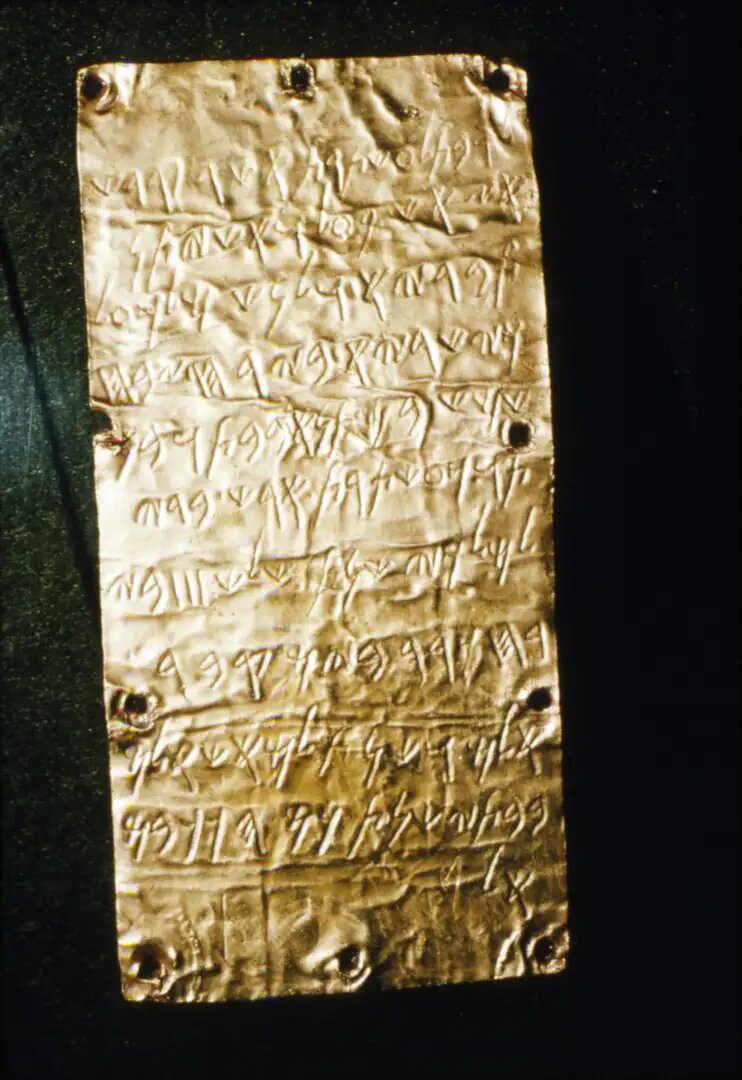 𐤋𐤓𐤁𐤕 𐤋𐤏𐤔𐤕𐤓𐤕 𐤀𐤔𐤓 𐤒𐤃𐤔
𐤀𐤆 𐤀𐤔 𐤐𐤏𐤋 𐤅𐤀𐤔 𐤉𐤕𐤍
𐤕𐤁𐤓𐤉𐤀 𐤅𐤋𐤍𐤔 𐤌𐤋𐤊 𐤏𐤋
𐤊𐤉𐤔𐤓𐤉𐤀 𐤁𐤉𐤓𐤇 𐤆𐤁𐤇
𐤔𐤌𐤔 𐤁𐤌𐤕𐤍 𐤀𐤁𐤁𐤕 𐤅𐤁𐤍
𐤕𐤅 𐤊𐤏𐤔𐤕𐤓𐤕 𐤀𐤓𐤔 𐤁𐤃𐤉
𐤋𐤌𐤋𐤊𐤉 𐤔𐤍𐤕 𐤔𐤋𐤔 𐤖𐤖𐤖 𐤁𐤉
𐤓𐤇 𐤊𐤓𐤓 𐤁𐤉𐤌 𐤒𐤁𐤓
𐤀𐤋𐤌 𐤅𐤔𐤍𐤕 𐤋𐤌𐤀𐤔 𐤀𐤋𐤌
𐤁𐤁𐤕𐤉 𐤔𐤍𐤕 𐤊𐤌 𐤄𐤊𐤊𐤁𐤌
𐤀𐤋